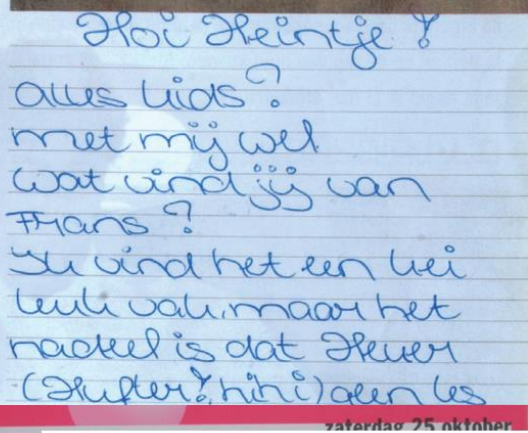 Hoi Heintje!
alles kids?
met mij wel
wat vind jij van
Frans?
Ik vind het een kei
leuk vak, maar het
nadeel is dat Heuer
(Hufter! hihi) geen les
zaterdag 25 oktober